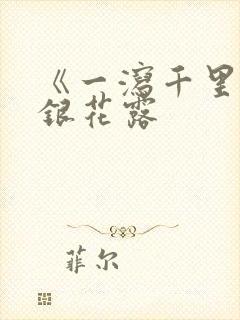 《一瀉千里
銀花露
菲尔